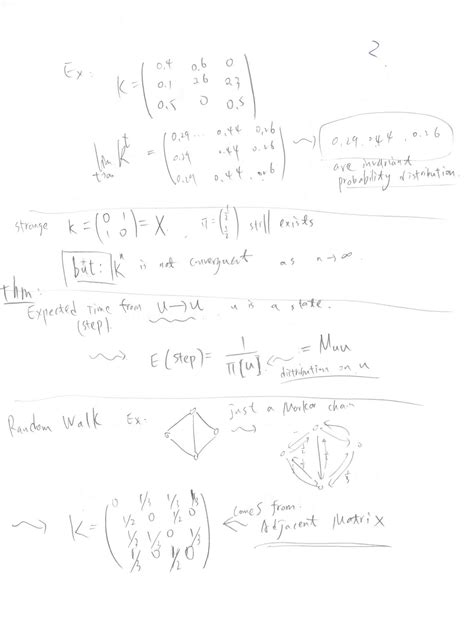 2
Ex:
K = ( 0.4 0.6 0
0.1 0.6 0.3
0.5 0 0.5 )
lim K^t = ( 0.29 ... 0.44 0.26
t→∞ 0.29 0.44 0.26
0.29 0.44 ..26 )
⇝ 0.29 .44 , 0.26
are invariant
probability distribution.
strange K = ( 0 1
1 0 ) = X. π = ( 1/2
1/2 ) still exists
but: K^n is not convergent as n→∞.
thm:
Expected Time from u→u u is a state.
(step).
⇝ E(step) = 1/π[u] = Muu
distribution on u
Random Walk Ex: just a Markov chain
⇝ K = ( 0 1/3 1/3 1/3
1/2 0 1/2 0
1/3 0 1/3
1/3 0 1/2 0 ) ← comes from
Adjacent Matrix